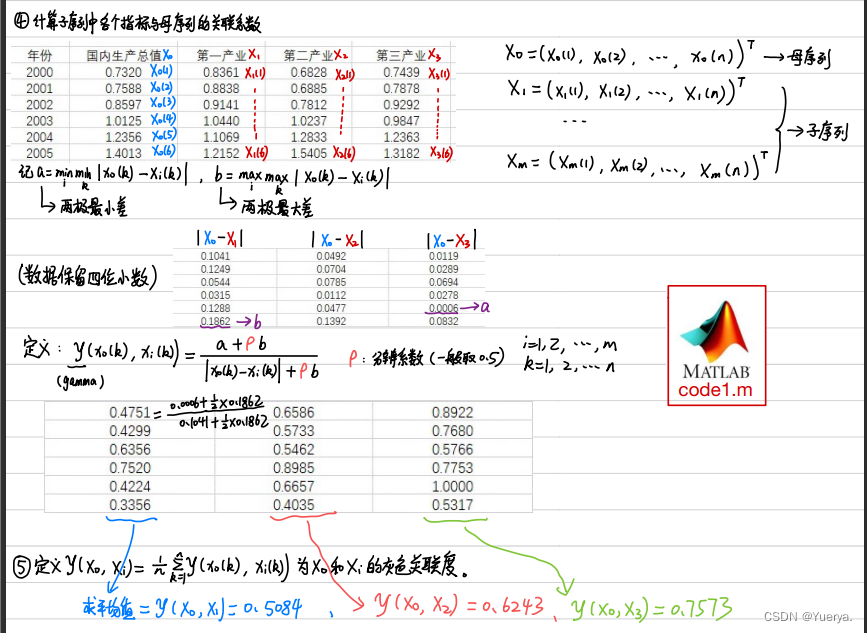 ④ 计算子序列中各个指标与母序列的关联系数
年份 国内生产总值X₀ 第一产业X₁ 第二产业X₂ 第三产业X₃
2000 0.7320 X₀(1) 0.8361 X₁(1) 0.6828 X₂(1) 0.7439 X₃(1)
2001 0.7588 X₀(2) 0.8838 0.6885 0.7878
2002 0.8597 X₀(3) 0.9141 0.7812 0.9292
2003 1.0125 X₀(4) 1.0440 1.0237 0.9847
2004 1.2356 X₀(5) 1.1069 1.2833 1.2363
2005 1.4013 X₀(6) 1.2152 X₁(6) 1.5405 X₂(6) 1.3182 X₃(6)
X₀=(X₀(1), X₀(2), ⋯, x₀(n))ᵀ →母序列
X₁=(x₁(1), X₁(2), ⋯, X₁(n))ᵀ
⋯ →子序列
Xₘ=(Xₘ(1), Xₘ(2), ⋯, Xₘ(n))ᵀ
记 a=min min |x₀(k)−xᵢ(k)| , b=max max |X₀(k)−Xᵢ(k)|
i k i k
两极最小差 两极最大差
|X₀−X₁| |X₀−X₂| |X₀−X₃|
(数据保留四位小数)
0.1041 0.0492 0.0119
0.1249 0.0704 0.0289
0.0544 0.0785 0.0694
0.0315 0.0112 0.0278
0.1288 0.0477 0.0006 →a
0.1862 →b 0.1392 0.0832
定义: y(x₀(k), xᵢ(k)) = (a+ρb)/(|x₀(k)−xᵢ(k)|+ρb) ρ: 分辨系数 (一般取0.5) i=1, 2, ⋯, m
k=1, 2, ⋯ n
(gamma)
MATLAB
code1.m
0.4751 = (0.0006+½×0.1862)/(0.1041+½×0.1862) 0.6586 0.8922
0.4299 0.5733 0.7680
0.6356 0.5462 0.5766
0.7520 0.8985 0.7753
0.4224 0.6657 1.0000
0.3356 0.4035 0.5317
⑤ 定义 y(X₀, Xᵢ)= 1/n ∑ₖ₌₁ⁿ y(x₀(k), xᵢ(k)) 为X₀和Xᵢ的灰色关联度。
求平均值 = y(X₀, X₁)=0.5084 、 y(X₀, X₂)=0.6243 、 y(X₀, X₃)=0.7573
CSDN @Yuerya.